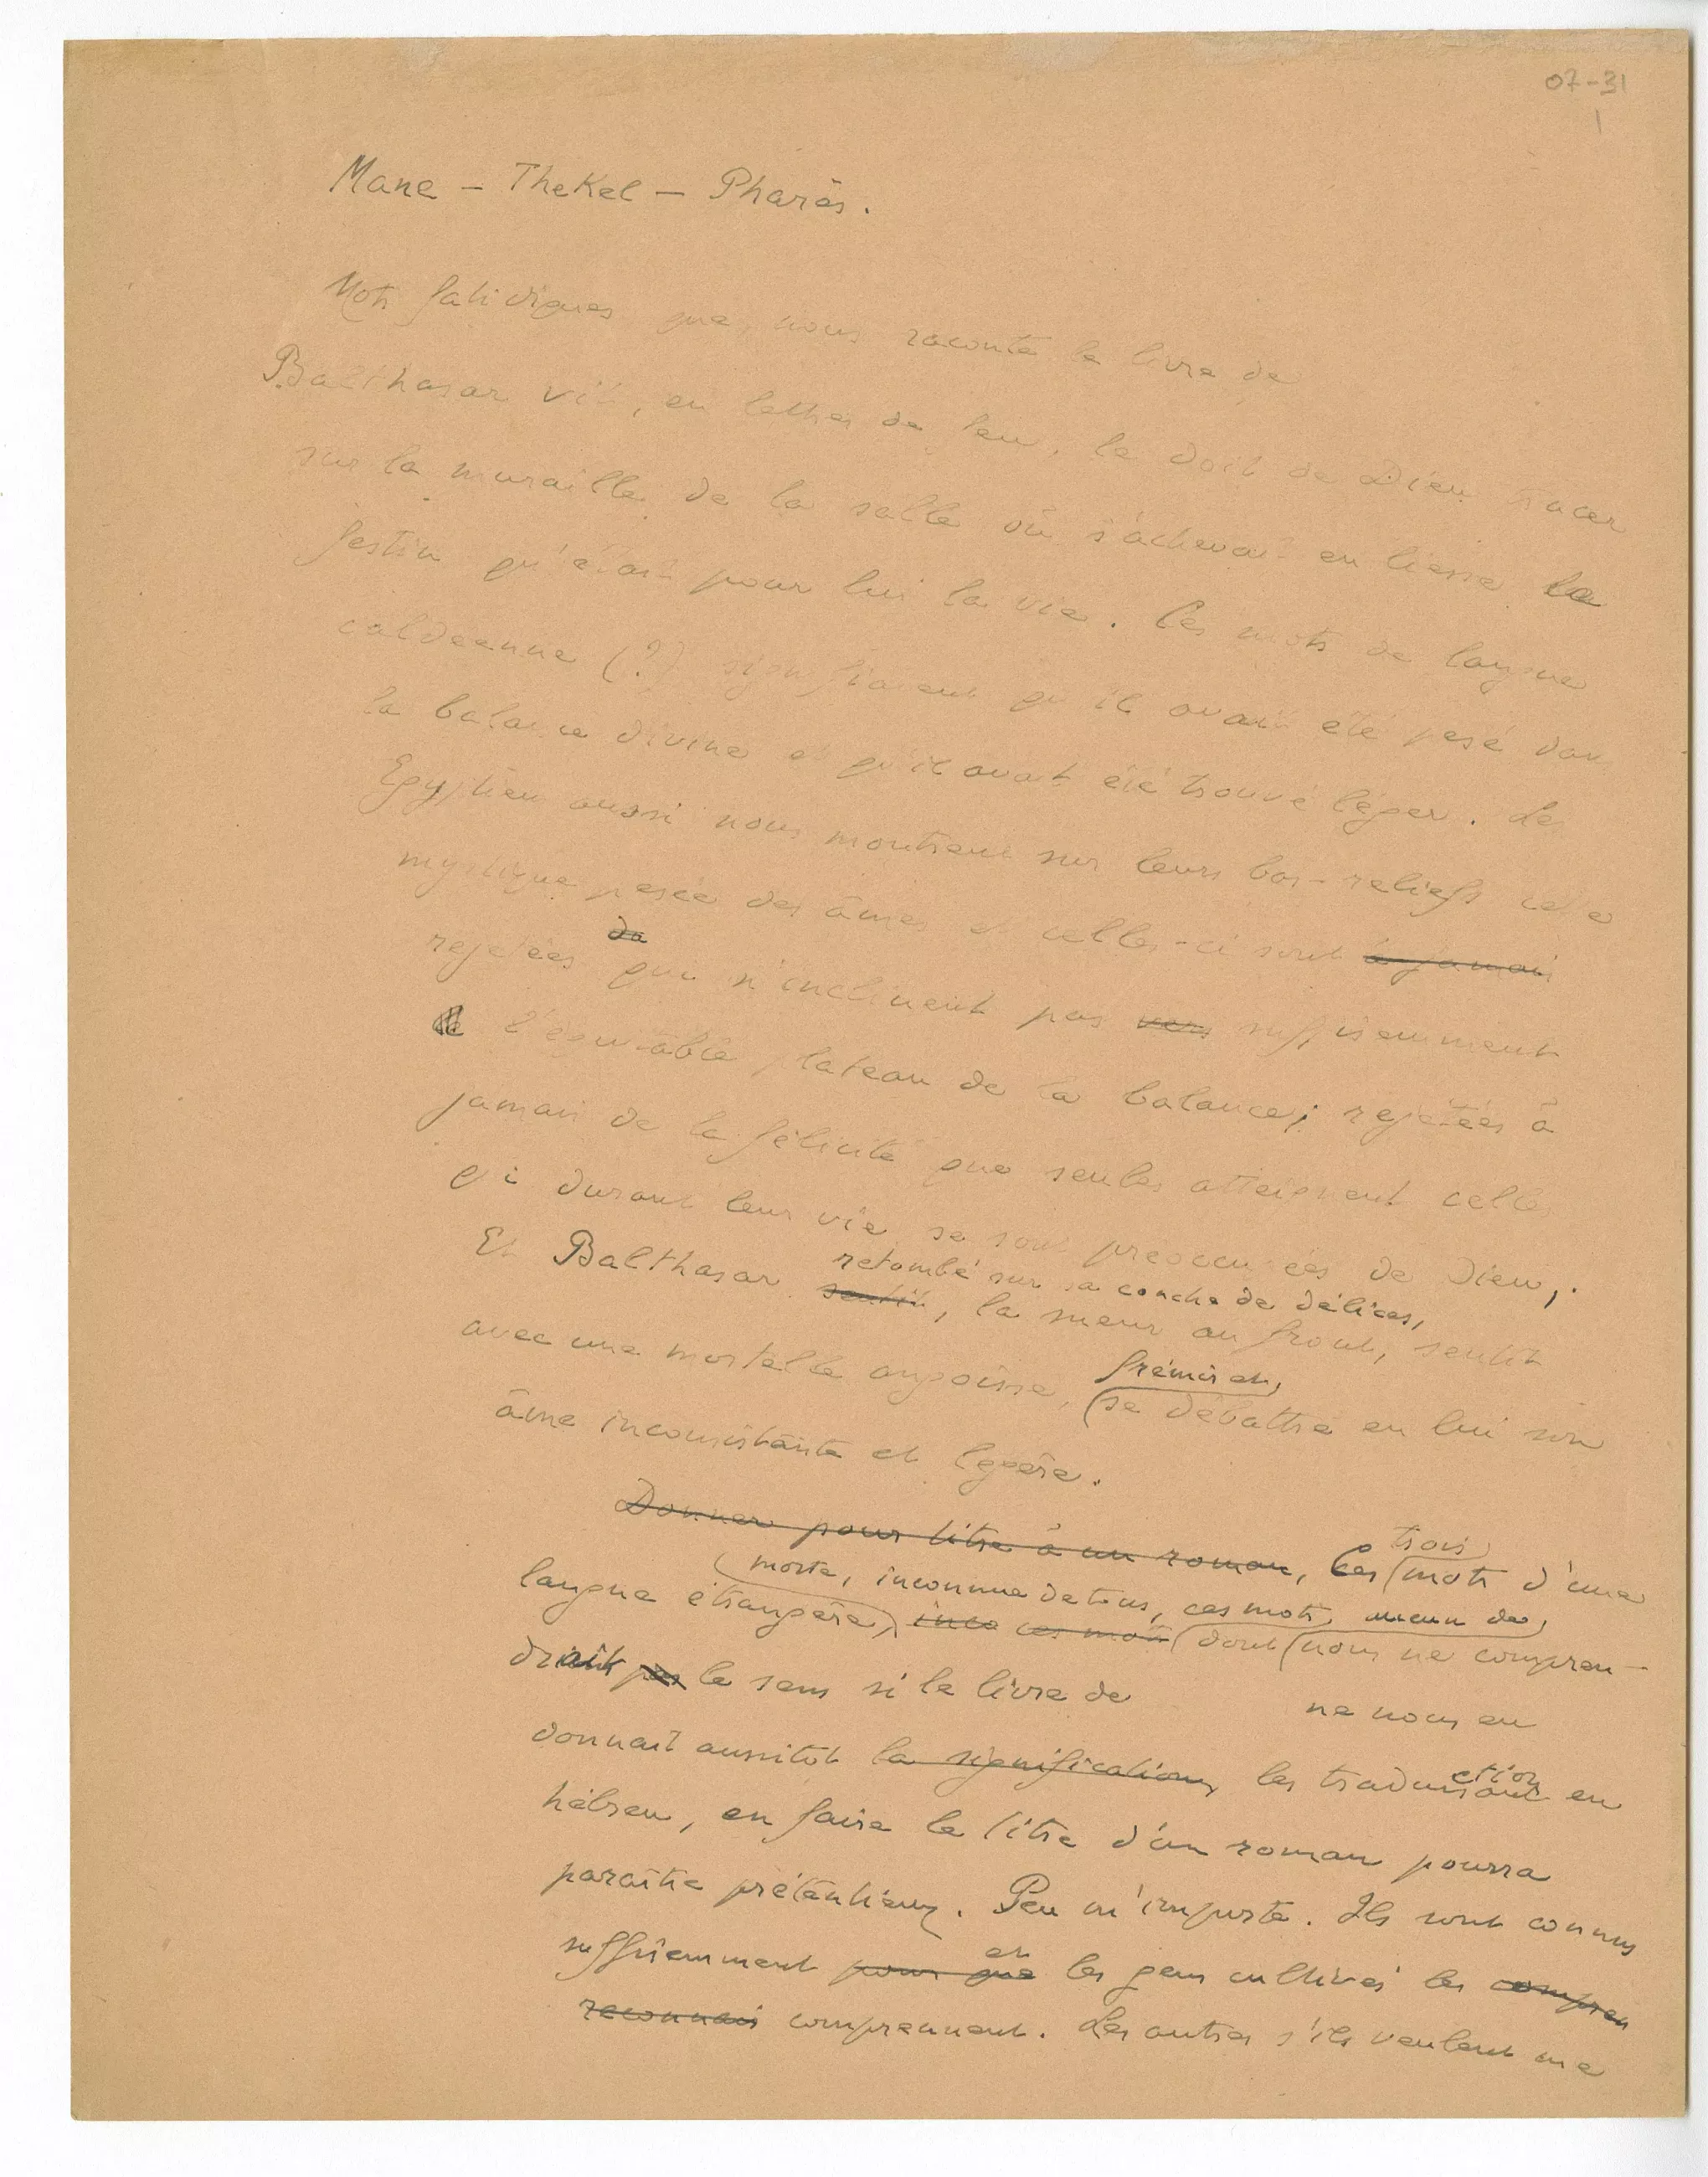 07-31
1
Mane - Thekel - Pharès.
Mots fatidiques que, nous raconte le livre de
Balthasar vit, en lettres de feu, le doit de Dieu tracer
sur la muraille de la salle où s'achevait en liesse le
festin qu'était pour lui la vie. Ces mots de langue
caldeenne (?) signifiaient qu'il avait été pesé dans
la balance divine et qu'il avait été trouvé léger. Les
Egyptiens aussi nous montrent sur leurs bas-reliefs cette
mystique pesée des âmes et celles-ci sont à jamais
de
rejetées qui n'inclinent pas vers suffisemment
l'équitable plateau de la balance; rejetées à
jamais de la félicité que seules atteignent celles
qui durant leur vie se sont préoccupées de Dieu,.
retombé sur sa couche de délices,
Et Balthasar sentit, la sueur au front, sentit
frémir et,
avec une mortelle angoisse, se débattre en lui son
âme inconsistante et légère.
trois
Donner pour titre à un roman, Ces mots d'une
morte, inconnue de tous, ces mots, aucun de,
langue étrangère, inco ces mots dont nous ne compren-
drait pas le sens si le livre de ne nous en
ction
donnait aussitôt la signification, les traduisant en
hébreu, en faire le titre d'un roman pourra
paraître prétentieux. Peu m'importe. Ils sont connus
et
suffisemment pour que les gens cultivés les compren
reconnais comprennent. Les autres s'ils veulent me